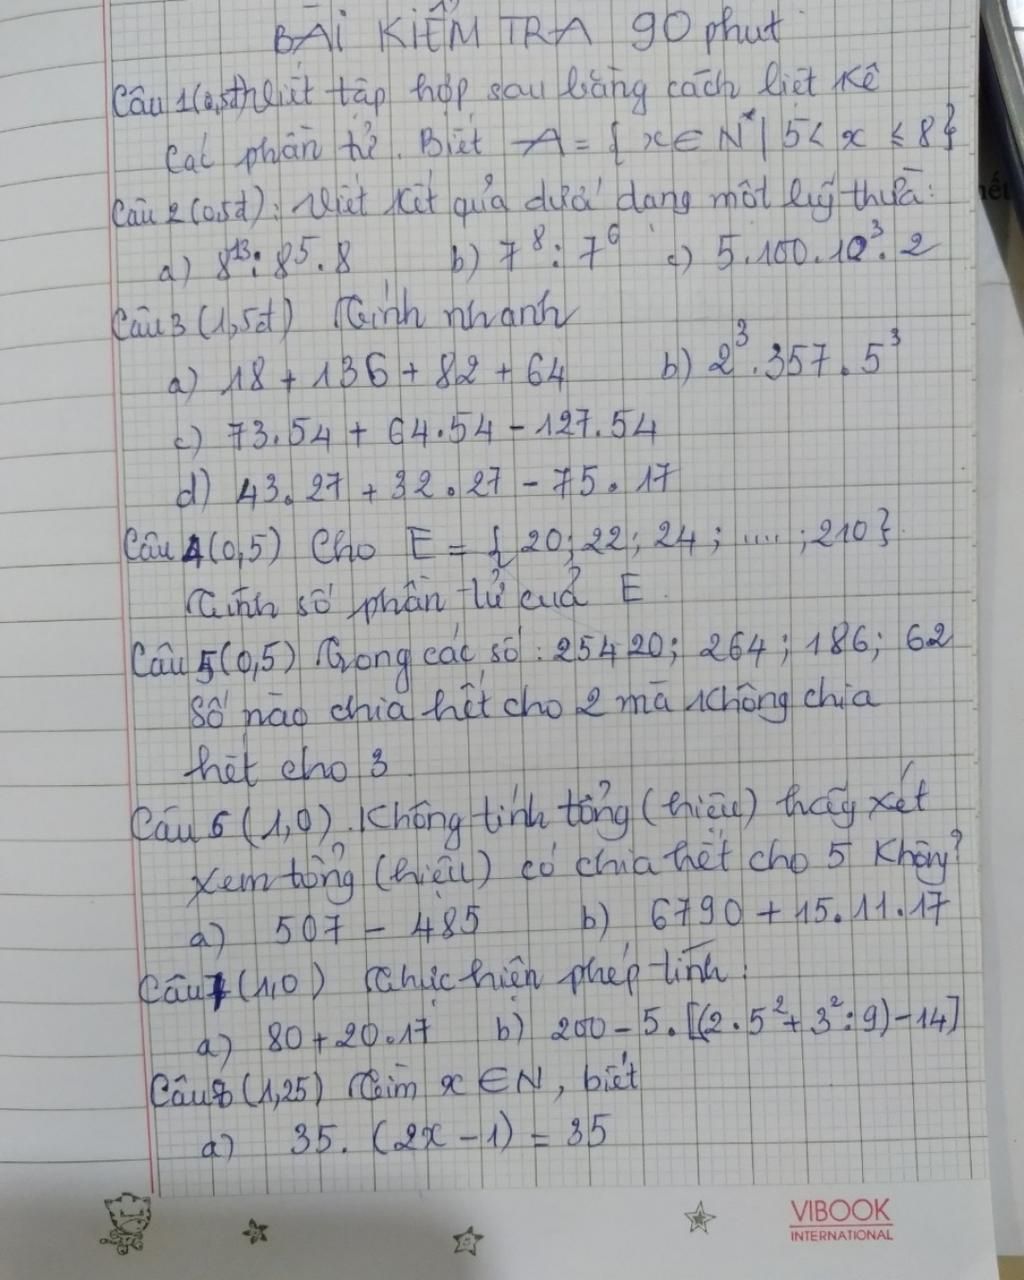 BÀI KIỂM TRA 90 phút
Câu 1 (0,5đ) Viết tập hợp sau bằng cách liệt kê
các phần tử. Biết A = { x ∈ N* | 5 < x ≤ 8 }
Câu 2 (0,5đ): Viết kết quả dưới dạng một lũy thừa:
a) 8¹³ : 8⁵ . 8 b) 7⁸ : 7⁶ c) 5.100.10³.2
Câu 3 (1,5đ) Tính nhanh
a) 18 + 136 + 82 + 64 b) 2³.357.5³
c) 73.54 + 64.54 - 127.54
d) 43.27 + 32.27 - 75.17
Câu 4 (0,5) Cho E = { 20; 22; 24; ....; 210 }.
Tính số phần tử của E.
Câu 5 (0,5) Trong các số: 25420; 264; 186; 62
Số nào chia hết cho 2 mà không chia
hết cho 3
Câu 6 (1,0). Không tính tổng (hiệu) hãy xét
xem tổng (hiệu) có chia hết cho 5 không?
a) 507 - 485 b) 6790 + 15.11.17
Câu 7 (1,0) Thực hiện phép tính:
a) 80 + 20.17 b) 200 - 5.[(2.5² + 3² : 9) - 14]
Câu 8 (1,25) Tìm x ∈ N, biết
a) 35. (2x - 1) = 35
VIBOOK
INTERNATIONAL